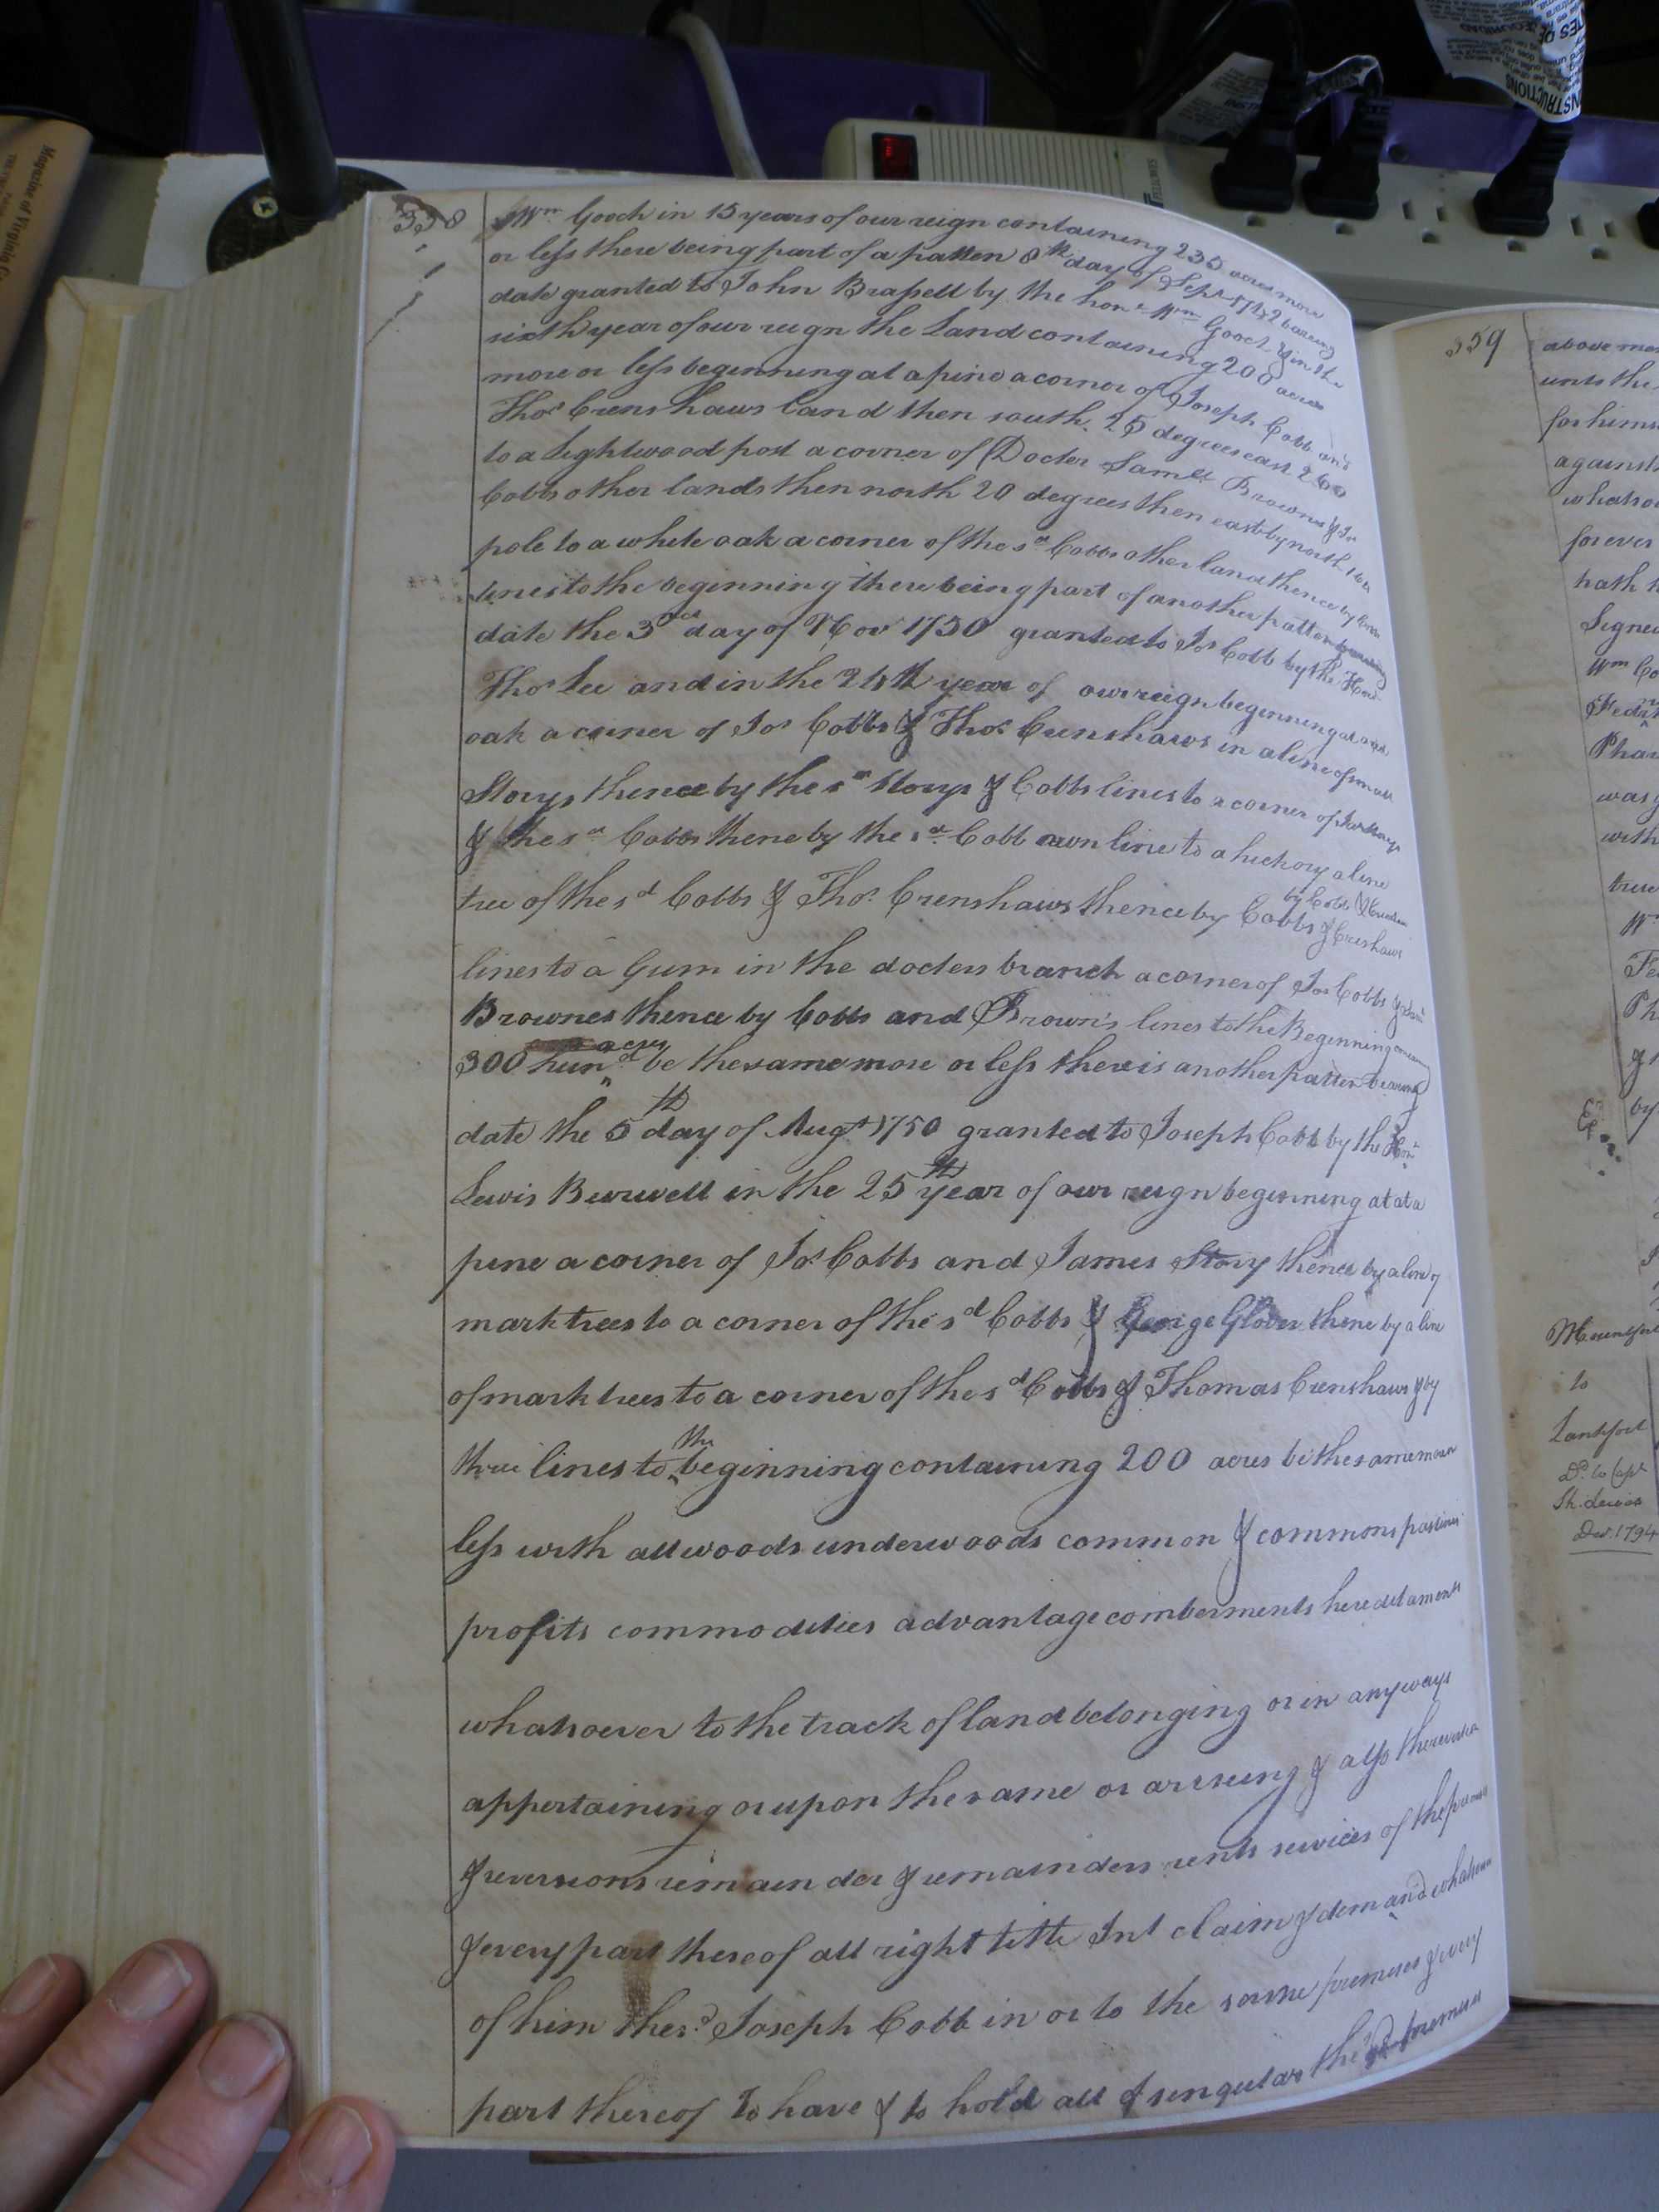 358
Wm Gooch in 15 years of our reign containing 235 acres more
or less there being part of a patten 8th day of Sept
date granted to John Brassell by the hon Wm Gooch & in the
sixth year of our reign the Land containing 200 acres
more or less beginning at a pine a corner of Joseph Cobb and
Thos Crenshaws land then south 25 degrees east 260
to a Lightwood post a corner of Docter Samel Browns & Jos
Cobbs other lands then north 20 degrees then east by north
pole to a white oak a corner of the sd Cobbs other land thence by
lines to the beginning there being part of another patten bearing
date the 3rd day of Nov 1750 granted to Jos Cobb by the Hon
Thos Lee and in the 24th year of our reign beginning at a
oak a corner of Jos Cobbs & Thos Crenshaws in a line of
Storys thence by the sd Storys & Cobbs lines to a corner of
& the sd Cobbs thence by the sd Cobb own line to a hickory a line
tree of the sd Cobbs & Thos Crenshaws thence by Cobbs & Creshaws
by Cobbs &
lines to a Gum in the docters branch a corner of Jos Cobbs &
Brownes thence by Cobbs and Brown's lines to the Beginning
300 hund acres be the same more or less there is another patten bearing
date the 5th day of Augt 1750 granted to Joseph Cobb by the Hon
Lewis Burwell in the 25th year of our reign beginning at at a
pine a corner of Jos Cobbs and James Story thence by a line of
mark trees to a corner of the sd Cobbs & George Glover thence by a line
of mark trees to a corner of the sd Cobbs & Thomas Crenshaws & by
three lines to the beginning containing 200 acres be the same more
less with all woods underwoods common & commons pastures
profits commodities advantage comberments hereditaments
whatsoever to the track of land belonging or in anyways
appertaining or upon the same or ariseing & also
& reversions remainder & remainders rents services of the
& every part thereof all right title Int claim & demand whatsoever
of him the sd Joseph Cobb in or to the same premises & every
part thereof To have & to hold all & singular the sd premises
359
above
unto the
for hims
against
whatso
forever
hath
Signed
Wm Co
was
with
true
Wm
by
to
Lankford
Dd. to Capt
Decr. 1794
Magazine of Virginia
FELLOWES
INSTRUCTIONS